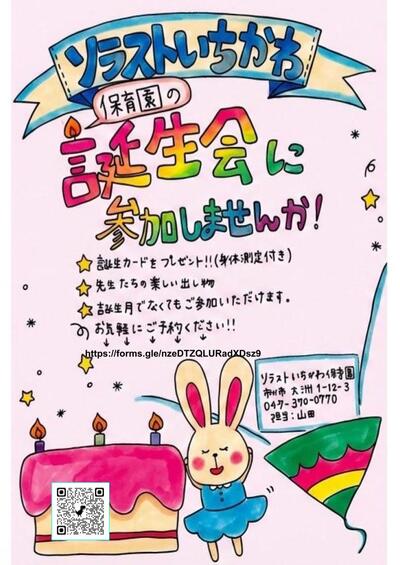 ソラストいちかわ
保育園の
誕生会に
参加しませんか!
誕生カードをプレゼント!!(身体測定付き)
先生たちの楽しい出し物
誕生月でなくてもご参加いただけます。
お気軽にご予約ください!!
↓ ↓ ↓ ↓ ↓ ↓ ↓
https://forms.gle/nzeDTZQLURadXDsz9
ソラストいちかわ保育園
市川市 大洲1-12-3
047-370-0770
担当:山田